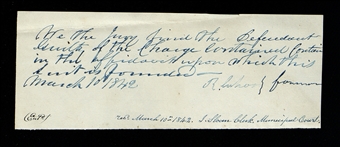 We the Jury find the Defendant
Guilty of the Charge Contained
in the affidavit upon which this
suit is founded
March 10 1842
foreman
March 10th 1842. Clerk Municipal Court